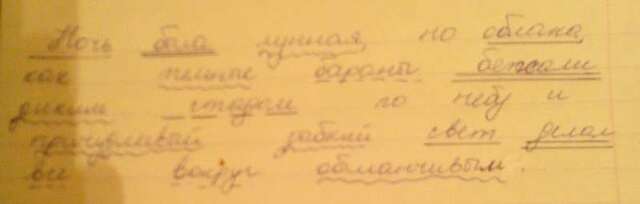 Ночь была лунная, но облака,
как темные бараны бежали
диким стадом по небу и
причудливый зыбкий свет делал
все вокруг обманчивым.